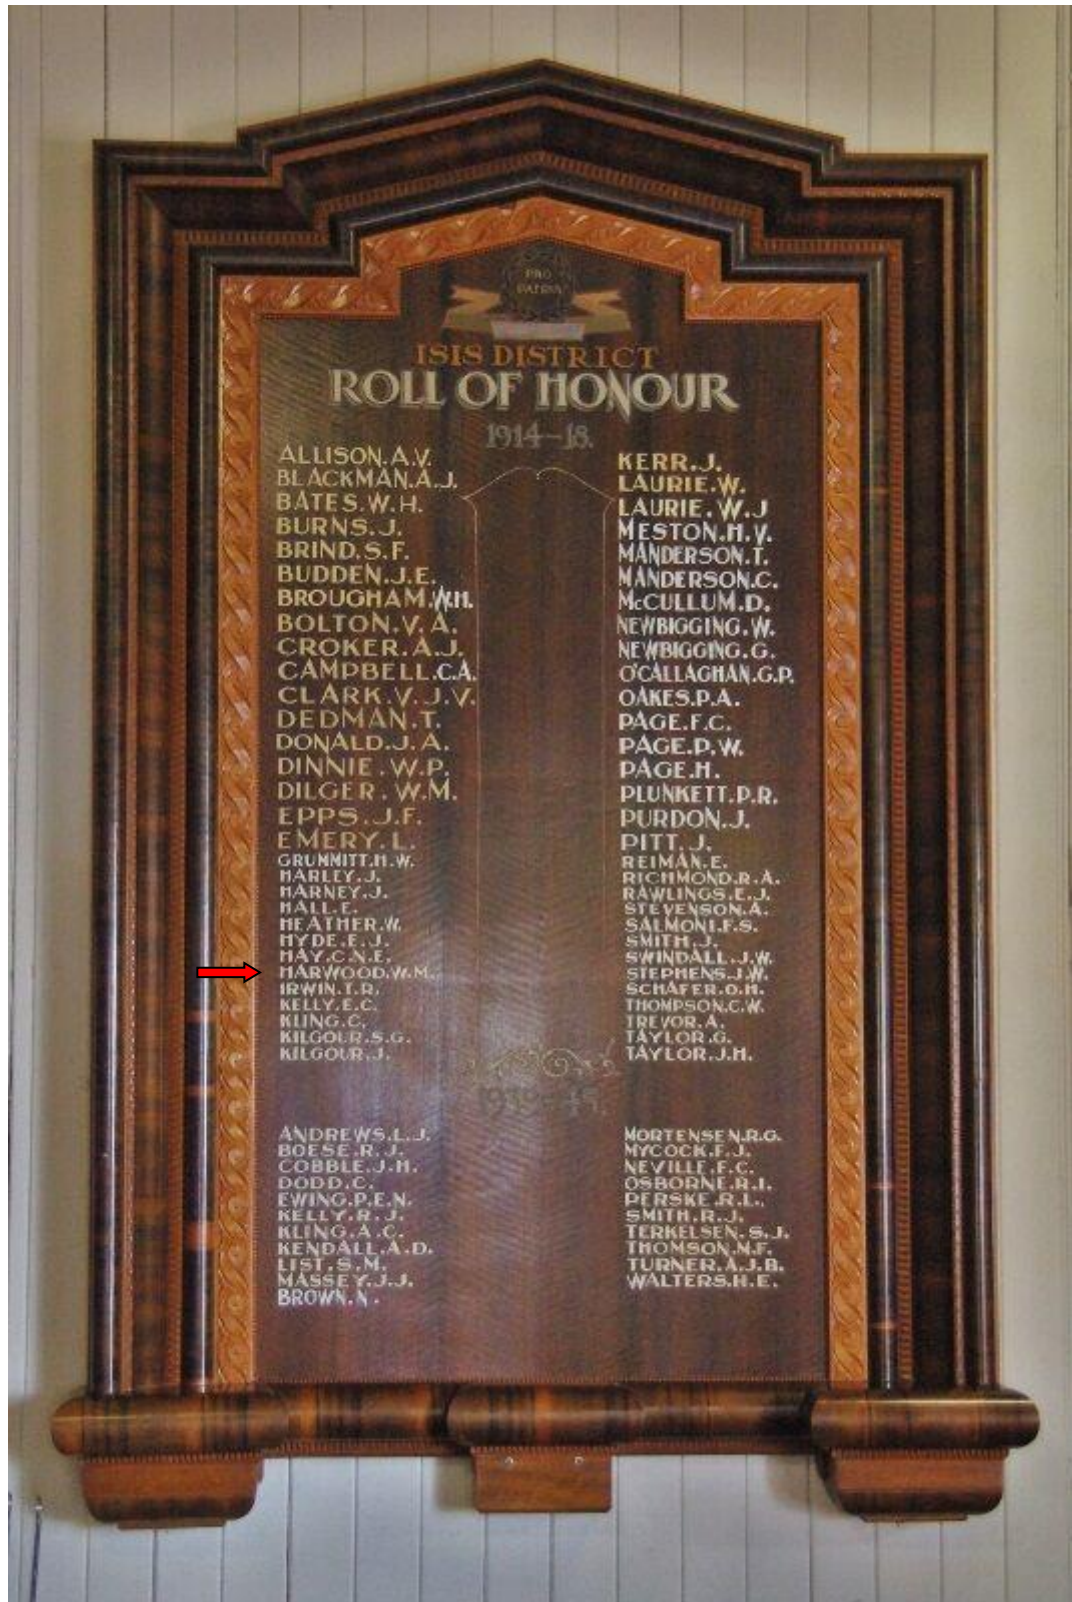 PRO
PATRIA
ISIS DISTRICT
ROLL OF HONOUR
1914-18.
ALLISON.A.V.
BLACKMAN.A.J.
BATES.W.H.
BURNS.J.
BRIND.S.F.
BUDDEN.J.E.
BROUGHAM.W.H.
BOLTON.V.A.
CROKER.A.J.
CAMPBELL.C.A.
CLARK.V.J.V.
DEDMAN.T.
DONALD.J.A.
DINNIE.W.P.
DILGER.W.M.
EPPS.J.F.
EMERY.L.
GRUMMITT.H.W.
HARLEY.J.
HARNEY.J.
HALL.E.
HEATHER.W.
HYDE.E.J.
HAY.C.N.E.
HARWOOD.W.M.
IRWIN.T.R.
KELLY.E.C.
KLING.C.
KILGOUR.S.G.
KILGOUR.J.
KERR.J.
LAURIE.W.
LAURIE.W.J
MESTON.H.V.
MANDERSON.T.
MANDERSON.C.
McCULLUM.D.
NEWBIGGING.W.
NEWBIGGING.G.
O'CALLAGHAN.G.P.
OAKES.P.A.
PAGE.F.C.
PAGE.P.W.
PAGE.H.
PLUNKETT.P.R.
PURDON.J.
PITT.J.
REIMAN.E.
RICHMOND.R.A.
RAWLINGS.E.J.
STEVENSON.A.
SALMONI.F.S.
SMITH.J.
SWINDALL.J.W.
STEPHENS.J.W.
SCHAFER.O.H.
THOMPSON.C.W.
TREVOR.A.
TAYLOR.G.
TAYLOR.J.H.
1939-45.
ANDREWS.L.J.
BOESE.R.J.
COBBLE.J.H.
DODD.C.
EWING.P.E.N.
KELLY.R.J.
KLING.A.C.
KENDALL.A.D.
LIST.S.M.
MASSEY.J.J.
BROWN.N.
MORTENSEN.R.G.
MYCOCK.F.J.
NEVILLE.F.C.
OSBORNE.R.I.
PERSKE.R.L.
SMITH.R.J.
TERKELSEN.S.J.
THOMSON.N.F.
TURNER.A.J.B.
WALTERS.H.E.